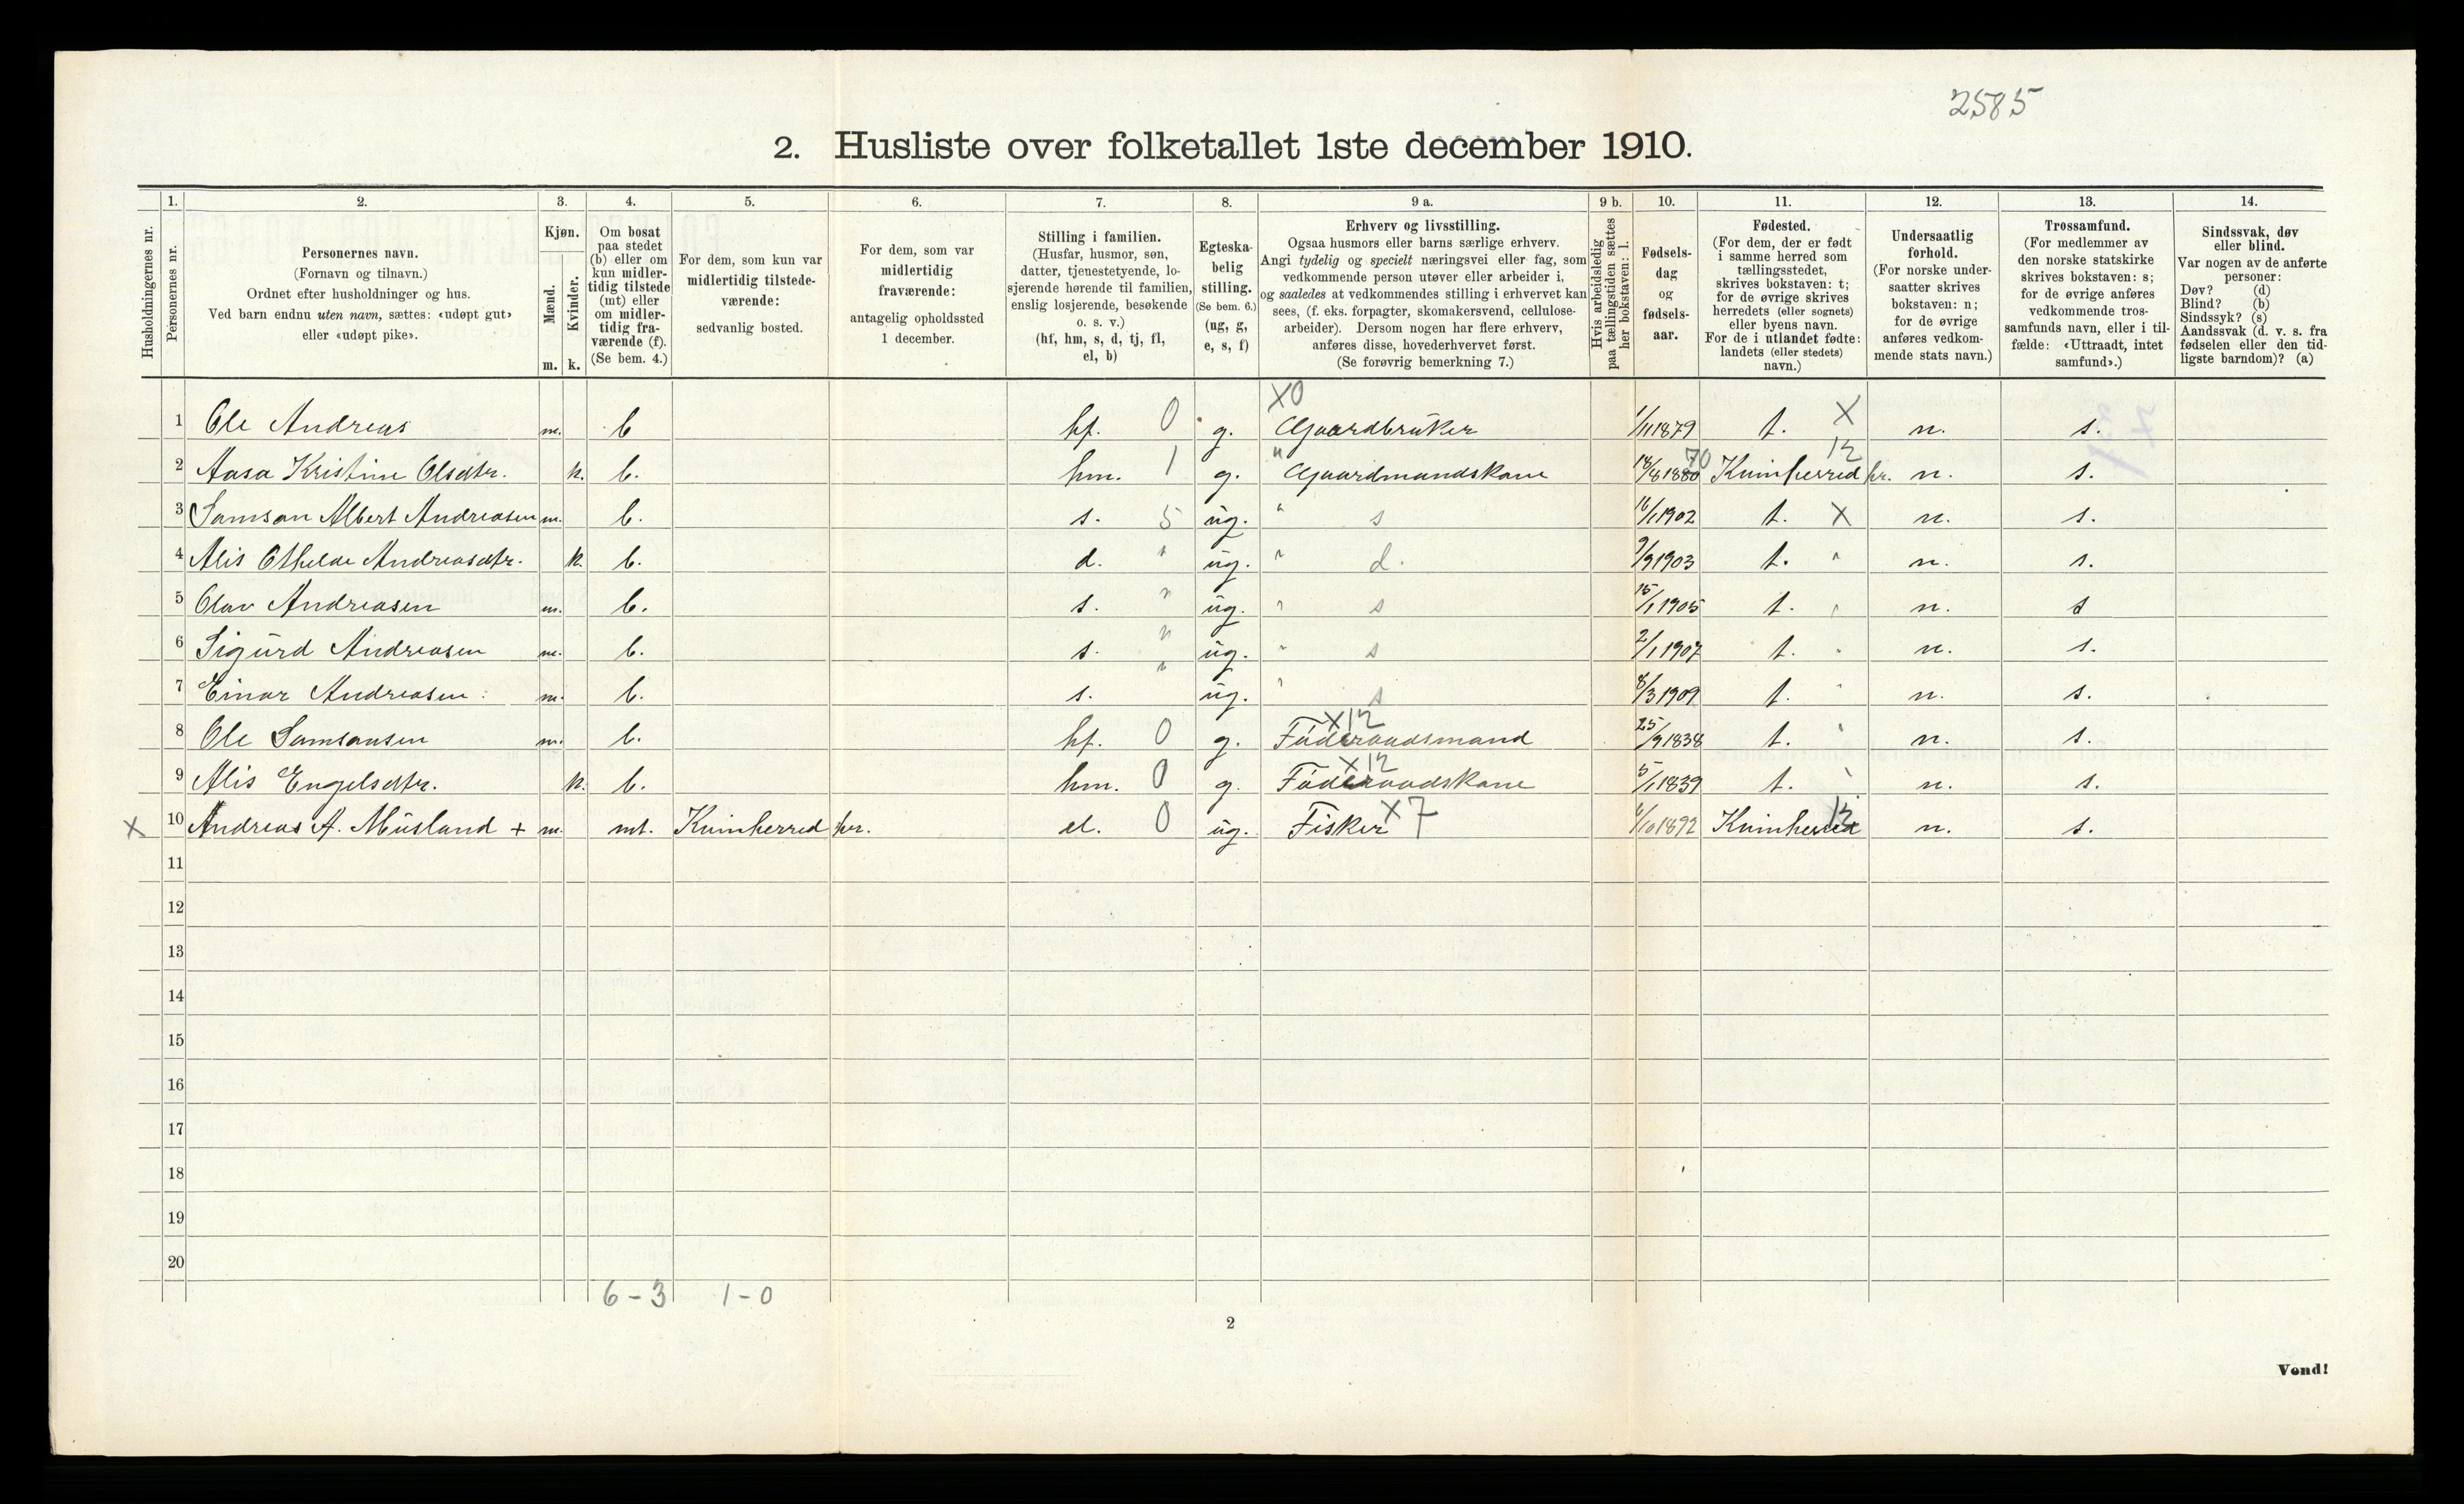 2585
2. Husliste over folketallet 1ste december 1910.
Husholdningernes nr.
1. Personernes nr.
2. Personernes navn.
(Fornavn og tilnavn.)
Ordnet efter husholdninger og hus.
Ved barn endnu uten navn, sættes: «udøpt gut»
eller «udøpt pike».
3. Kjøn.
Mænd. m.
Kvinder. k.
4. Om bosat
paa stedet
(b) eller om
kun midler-
tidig tilstede
(mt) eller
om midler-
tidig fra-
værende (f).
(Se bem. 4.)
5. For dem, som kun var
midlertidig tilstede-
værende:
sedvanlig bosted.
6. For dem, som var
midlertidig
fraværende:
antagelig opholdssted
1 december.
7. Stilling i familien.
(Husfar, husmor, søn,
datter, tjenestetyende, lo-
sjerende hørende til familien,
enslig losjerende, besøkende
o. s. v.)
(hf, hm, s, d, tj, fl,
el, b)
8. Egteska-
belig
stilling.
(Se bem. 6.)
(ug, g,
e, s, f)
9 a. Erhverv og livsstilling.
Ogsaa husmors eller barns særlige erhverv.
Angi tydelig og specielt næringsvei eller fag, som
vedkommende person utøver eller arbeider i,
og saaledes at vedkommendes stilling i erhvervet kan
sees, (f. eks. forpagter, skomakersvend, cellulose-
arbeider). Dersom nogen har flere erhverv,
anføres disse, hovederhvervet først.
(Se forøvrig bemerkning 7.)
9 b. Hvis arbeidsledig
paa tællingstiden sættes
her bokstaven: l.
10. Fødsels-
dag
og
fødsels-
aar.
11. Fødested.
(For dem, der er født
i samme herred som
tællingsstedet,
skrives bokstaven: t;
for de øvrige skrives
herredets (eller sognets)
eller byens navn.
For de i utlandet fødte:
landets (eller stedets)
navn.)
12. Undersaatlig
forhold.
(For norske under-
saatter skrives
bokstaven: n;
for de øvrige
anføres vedkom-
mende stats navn.)
13. Trossamfund.
(For medlemmer av
den norske statskirke
skrives bokstaven: s;
for de øvrige anføres
vedkommende tros-
samfunds navn, eller i til-
fælde: «Uttraadt, intet
samfund».)
14. Sindssvak, døv
eller blind.
Var nogen av de anførte
personer:
Døv? (d)
Blind? (b)
Sindssyk? (s)
Aandssvak (d. v. s. fra
fødselen eller den tid-
ligste barndom)? (a)
X0
1 Ole Andreas m. b hf. 0 g. Gaardbruker 1/11 1879 t. X n. s.
2 Aasa Kristine Olsdtr. k. b. hm. 1 g. " Gaardmandskone 18/8 1880 70 Kvinherred hr. 12 n. s.
3 Samson Albert Andreasen m. b. s. 5 ug. " s 16/1 1902 t. X n. s.
4 Alis Othelde Andreasdtr. k. b. d. " ug. " d. 9/9 1903 t. " n. s.
5 Olav Andreasen m. b. s. " ug. " s 15/1 1905 t. " n. s
6 Sigurd Andreasen m. b. s. " ug. " s 2/1 1907 t. " n. s.
7 Einar Andreasen m. b. s. " ug. " s 8/3 1909 t. " n. s.
8 Ole Samsonsen m. b. hf. 0 g. Føderaadsmand X12 25/9 1838 t. " n. s.
9 Alis Engelsdtr. k. b. hm. 0 g. Føderaadskone X12 5/1 1839 t. " n. s.
X 10 Andreas A. Musland + m. mt. Kvinherred hr. el. 0 ug. Fisker X7 6/10 1892 Kvinherred 12 n. s.
11
12
13
14
15
16
17
18
19
20
6-3 1-0
2
Vend!